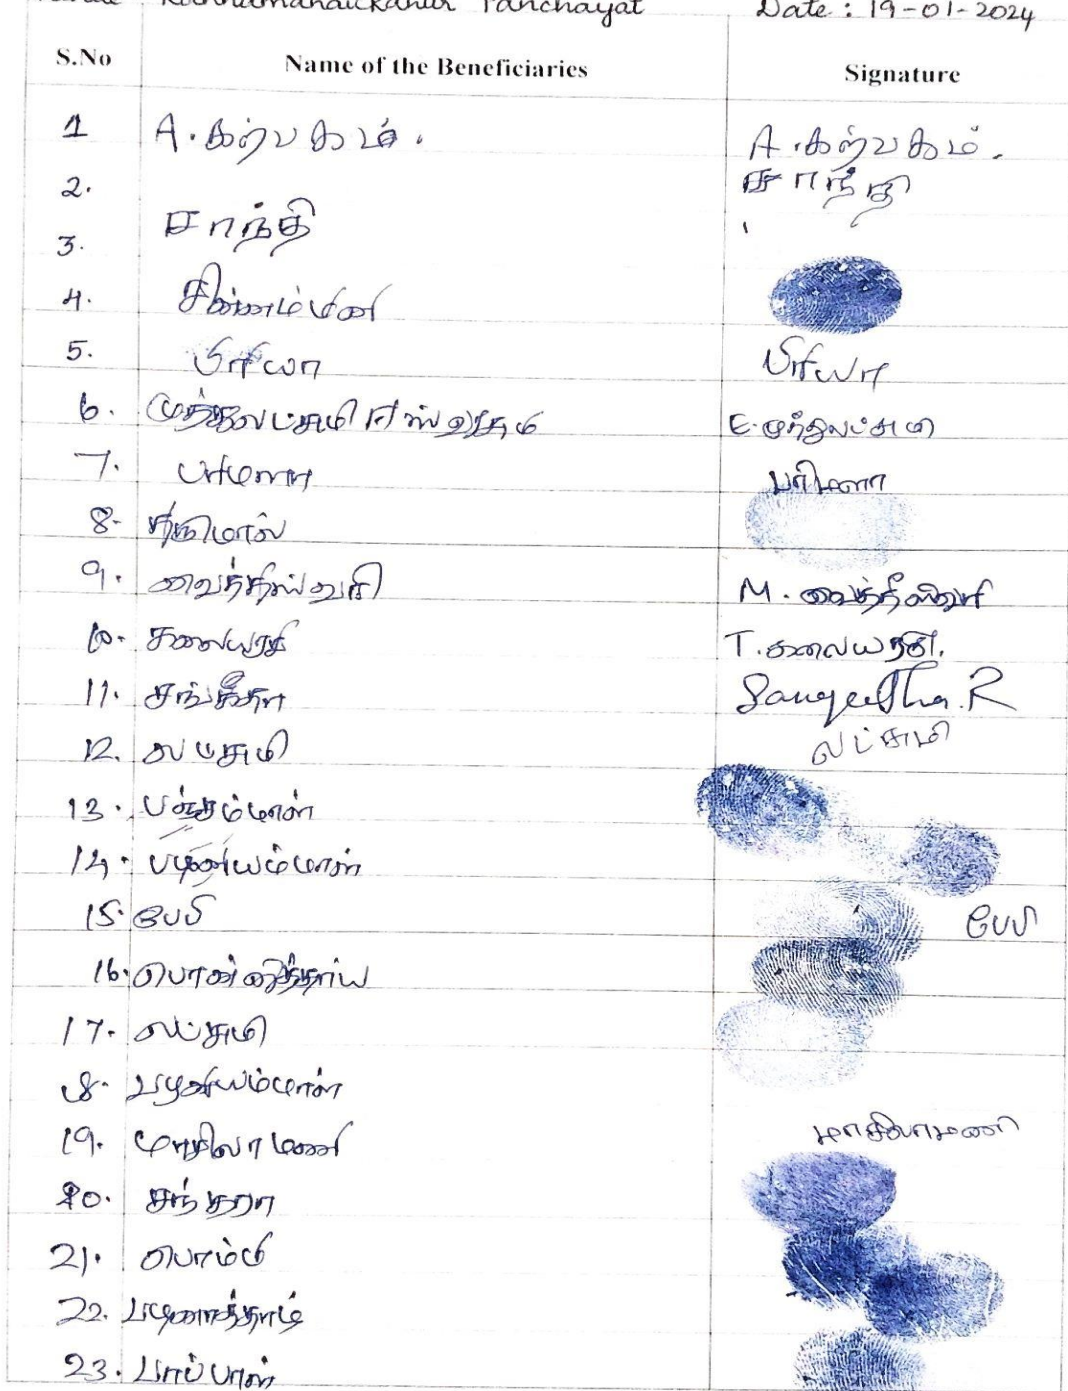 Panchayat Date : 19-01-2024
S.No Name of the Beneficiaries Signature
1 A. கற்பகம். A. கற்பகம்.
2. சாந்தி
3. சாந்தி
4. சின்னம்மணி
5. பிரியா பிரியா
6. முத்துலட்சுமி E. முத்துலட்சுமி
7. பரிமளா பரிமளா
8- திருமால்
9. வைத்தீஸ்வரி M. வைத்தீஸ்வரி
10. கலையரசி T. கலையரசி.
11. சங்கீதா Sangeetha. R
12. லட்சுமி லட்சுமி
13.
14. பழனியம்மாள்
15. பேபி பேபி
16. பொன்னுத்தாய்
17. லட்சுமி
18. பழனியம்மாள்
19. மாசிலாமணி மாசிலாமணி
20. சந்தரா
21. பொம்மி
22.
23. பாப்பாள்